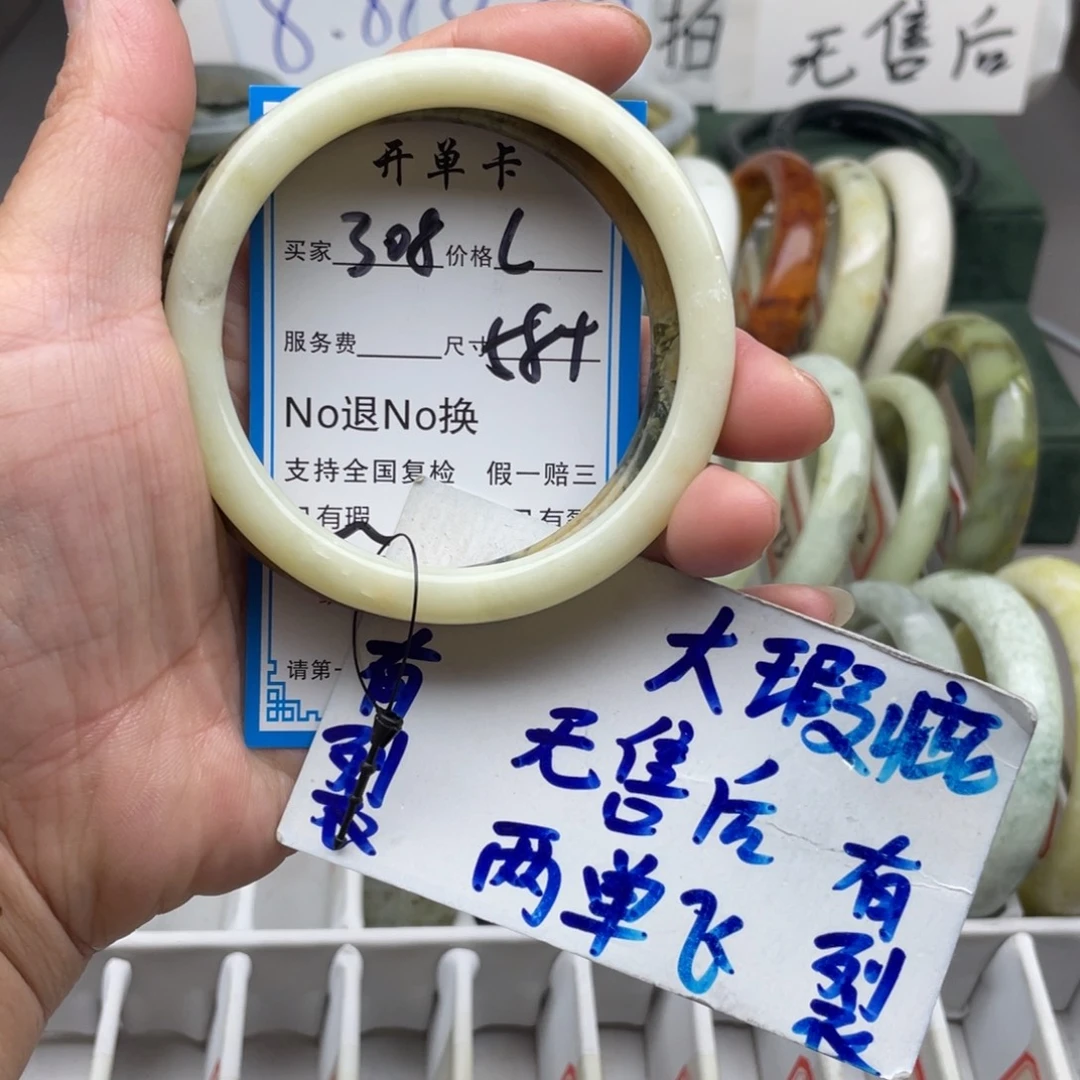 拍
无售后
开单卡
买家 308 价格 L
服务费 尺寸 584
No退No换
支持全国复检 假一赔三
有瑕
请第
大瑕疵
无售后
两单飞
有裂
有裂